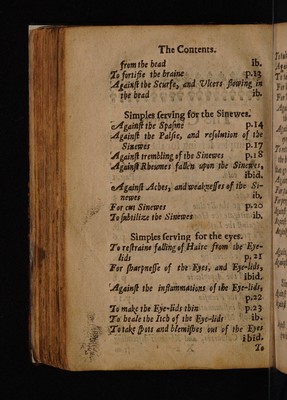 The Contents.
from the head Ib.
To fortifie the braine p.13
Against the Scurfe, and Ulcers flowing in
the head ib.
Simples serving for the Sinewes.
Against the Spasme p.14
Against the Palsie, and resolution of the
Sinewes p.17
Against trembling of the Sinewes p.18
Against Rheumes fallen upon the Sinewes,
ibid.
Against Aches, and weaknesses of the Si-
newes ib.
For cut Sinewes p.20
To subtilize the Sinewes ib.
Simples serving for the eyes.
To restraine falling of Haire from the Eye-
lids p.21
For sharpnesse of the Eyes, and Eye-lids,
ibid.
Against the inflammations of the Eye-lids,
p.22
To make the Eye-lids thin p.23
To heale the Itch of the Eye-lids ib.
To take spots and blemishes out of the Eyes
ibid.
To